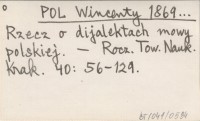 POL Wincenty 1869...
Rzecz o dijalektach mowy
polskiej. — Rocz. Tow. Nauk.
Krak. 40: 56-129.